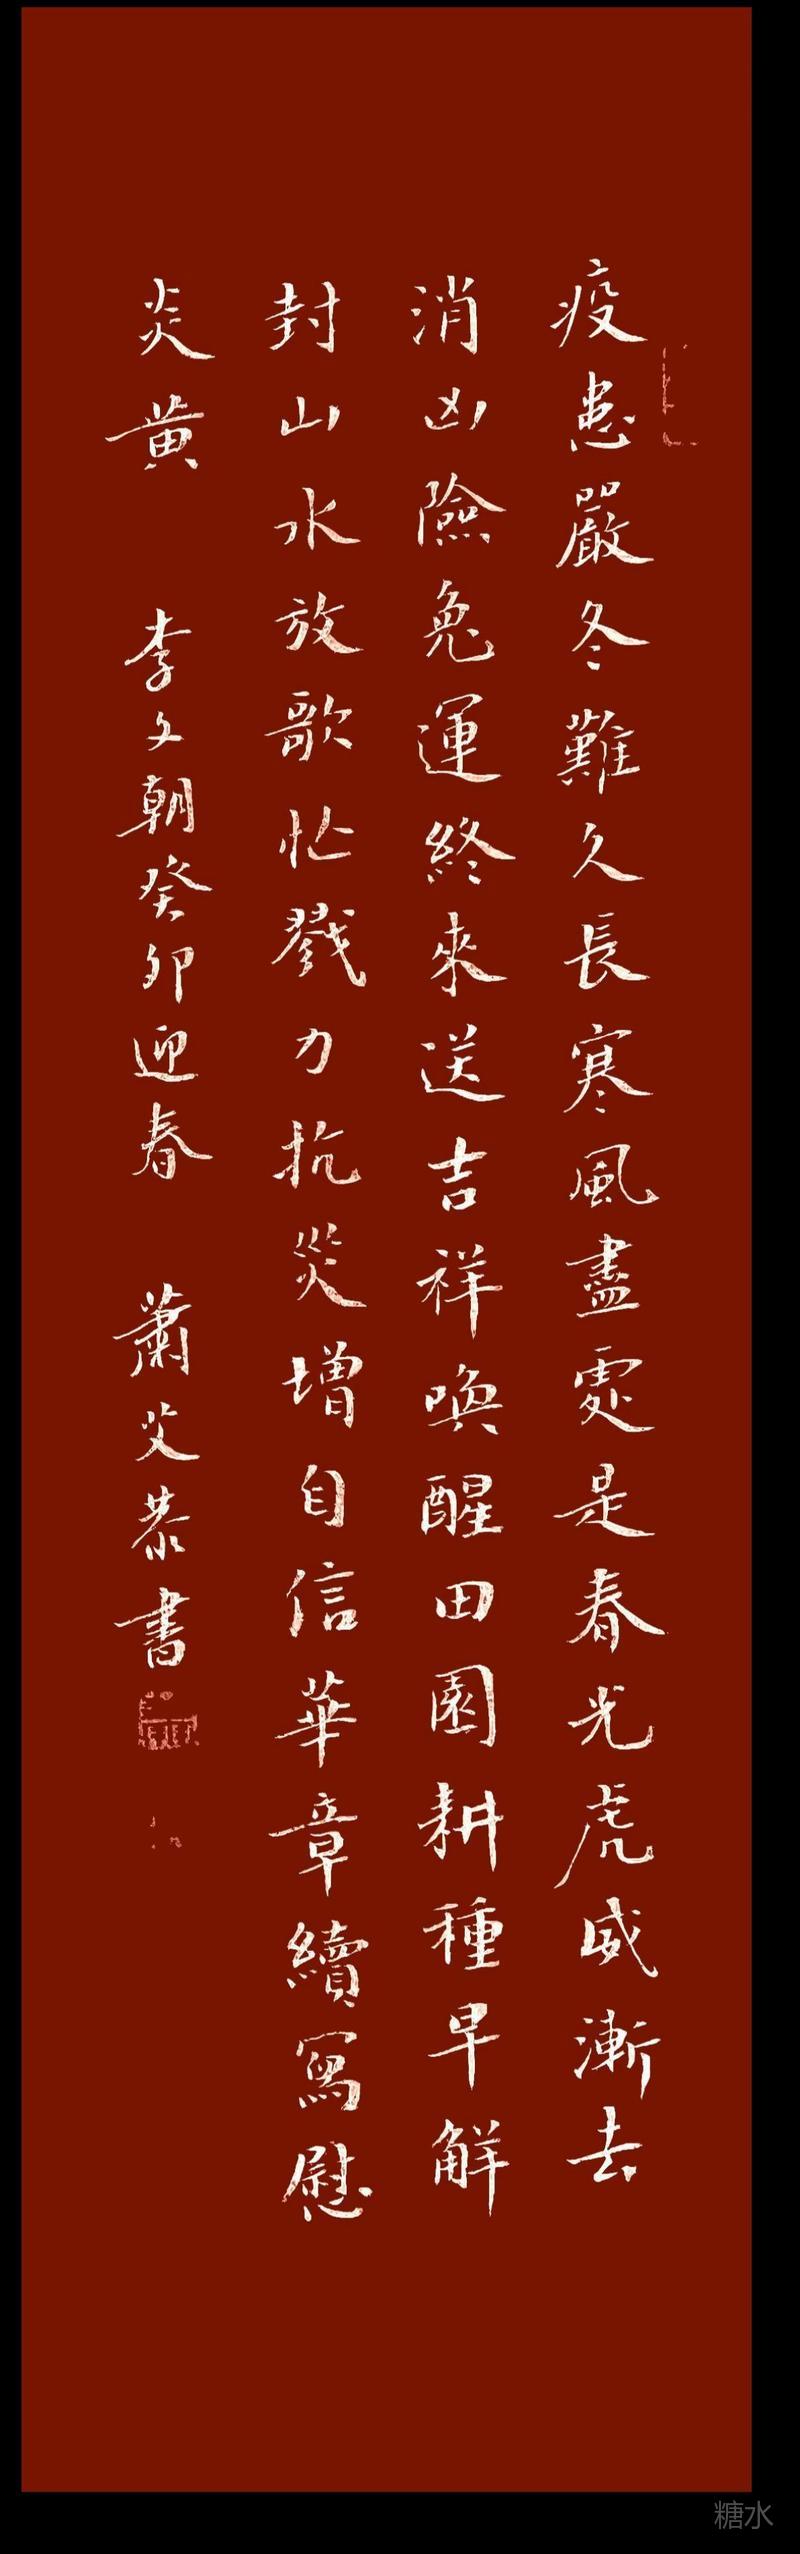 疫患嚴冬難久長寒風盡處是春光虎威漸去
消凶險兔運終來送吉祥喚醒田園耕種早解
封山水放歌忙戮力抗災增自信華章續寫慰
炎黃 李文朝癸卯迎春 蕭艾恭書
糖水